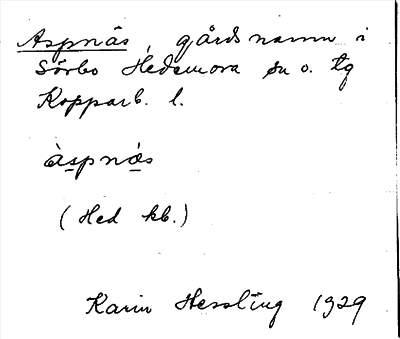 Aspnäs, gårdsnamn i
Sörbo Hedemora sn o. tg
Kopparb. l.
àspnæs
(Hed kb.)
Karin Hessling 1929